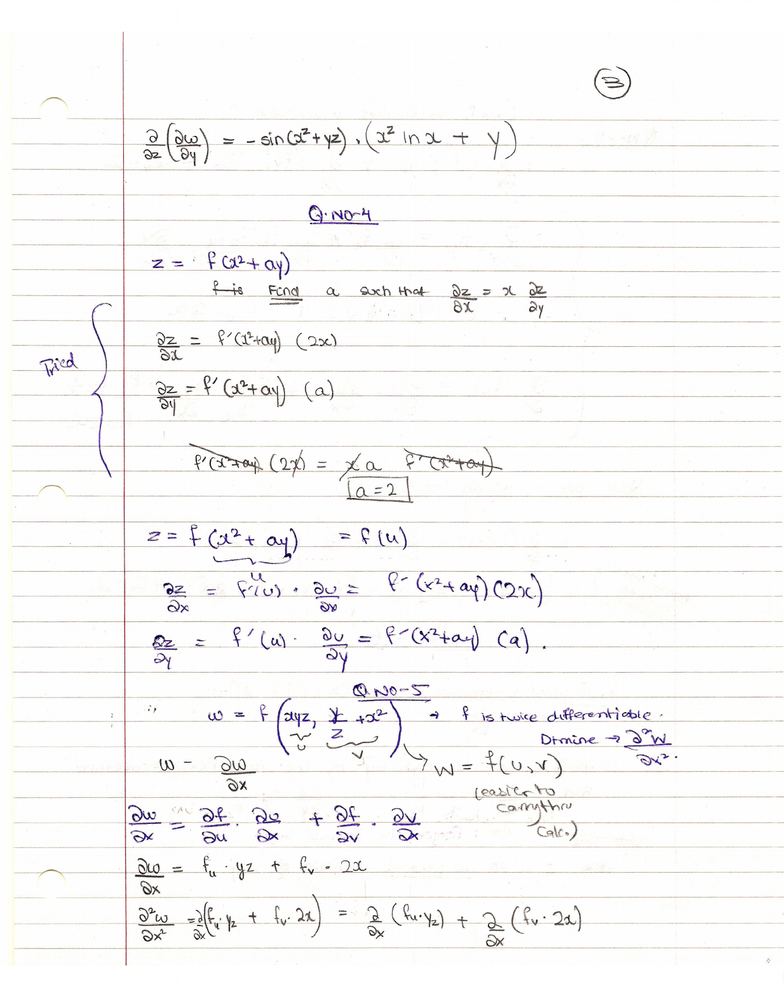 3
∂/∂z (∂w/∂y) = - sin(x^z + yz) . (x^z ln x + y)
Q.NO-4
z = f(x² + ay)
f is Find a such that ∂z/∂x = x ∂z/∂y
Tried
∂z/∂x = f'(x²+ay) (2x)
∂z/∂y = f'(x²+ay) (a)
f'(x²+ay) (2x) = x a f'(x²+ay)
a = 2
z = f(x² + ay) = f(u)
u
∂z/∂x = f'(u) · ∂u/∂x = f'(x²+ay)(2x)
∂z/∂y = f'(u) · ∂u/∂y = f'(x²+ay) (a).
Q.NO-5
w = f(xyz, y/z + x²) → f is twice differentiable.
u v
Dtmine → ∂²w/∂x².
w - ∂w/∂x
W = f(u,v)
(easier to
carry thru
calc.)
∂w/∂x = ∂f/∂u · ∂u/∂x + ∂f/∂v · ∂v/∂x
∂w/∂x = f_u · yz + f_v · 2x
∂²w/∂x² = ∂/∂x (f_u·yz + f_v·2x) = ∂/∂x (f_u·yz) + ∂/∂x (f_v · 2x)